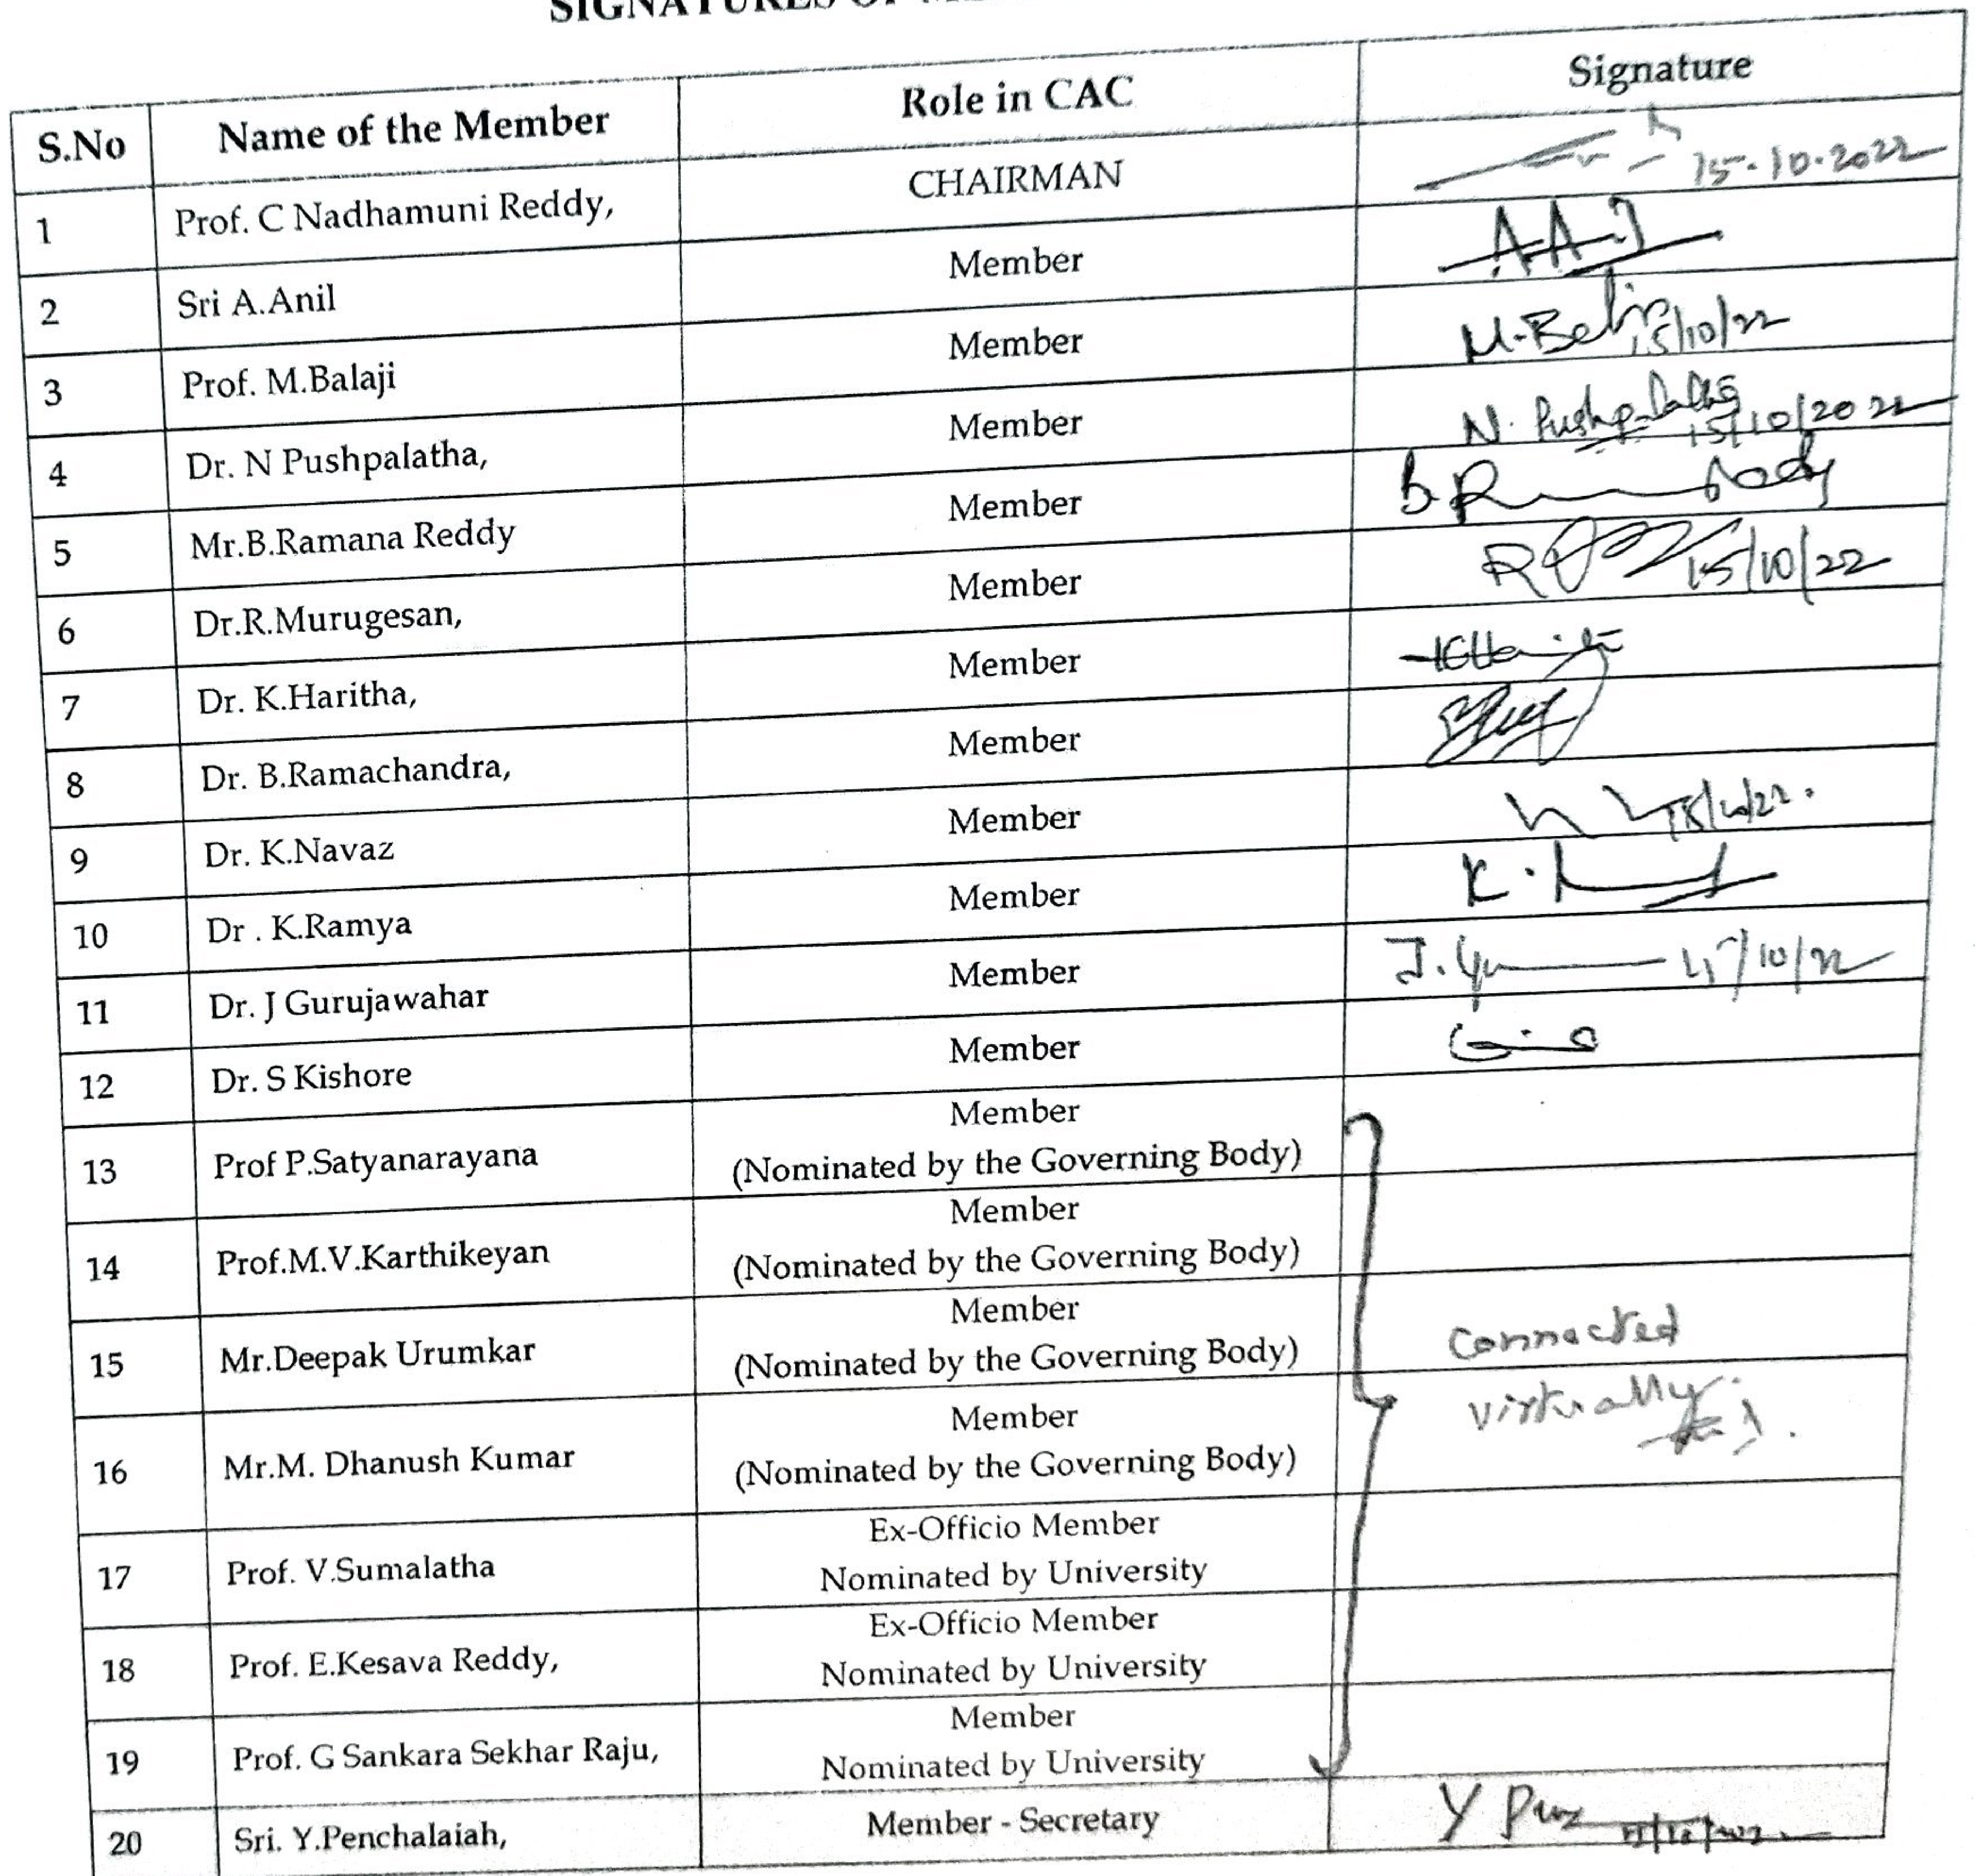 SIGNATURES OF
S.No Name of the Member Role in CAC Signature
1 Prof. C Nadhamuni Reddy, CHAIRMAN 15-10-2022
2 Sri A.Anil Member
3 Prof. M.Balaji Member 15/10/22
4 Dr. N Pushpalatha, Member N. Pushpalatha 15/10/2022
5 Mr.B.Ramana Reddy Member
6 Dr.R.Murugesan, Member 15/10/22
7 Dr. K.Haritha, Member
8 Dr. B.Ramachandra, Member
9 Dr. K.Navaz Member
10 Dr . K.Ramya Member
11 Dr. J Gurujawahar Member 15/10/22
12 Dr. S Kishore Member
13 Prof P.Satyanarayana Member
(Nominated by the Governing Body)
14 Prof.M.V.Karthikeyan Member
(Nominated by the Governing Body)
15 Mr.Deepak Urumkar Member
(Nominated by the Governing Body) connected
16 Mr.M. Dhanush Kumar Member virtually
(Nominated by the Governing Body)
17 Prof. V.Sumalatha Ex-Officio Member
Nominated by University
18 Prof. E.Kesava Reddy, Ex-Officio Member
Nominated by University
19 Prof. G Sankara Sekhar Raju, Member
Nominated by University
20 Sri. Y.Penchalaiah, Member - Secretary